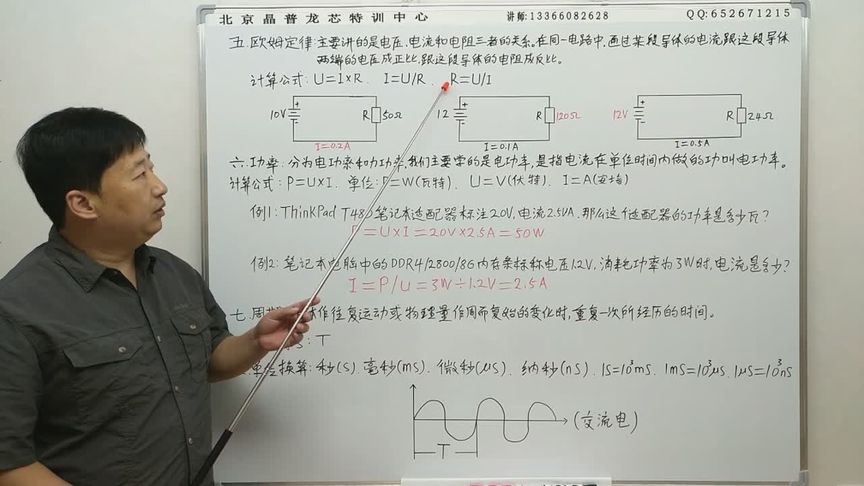 北京晶普龙芯特训中心 讲师:13366082628 QQ:652671215
五.欧姆定律:主要讲的是电压、电流和电阻三者的关系,在同一电路中,通过某段导体的电流,跟这段导体
两端的电压成正比,跟这段导体的电阻成反比。
计算公式:U=I×R、I=U/R、R=U/I
10V R 50Ω I=0.2A
12 R 120Ω I=0.1A
12V R 24Ω I=0.5A
六.功率:分为电功率和力功率,我们主要学的是电功率,是指电流在单位时间内做的功叫电功率。
计算公式:P=U×I、单位:P=W(瓦特)、U=V(伏特)、I=A(安培)
例1:ThinKPad T480笔记本适配器标注20V,电流2.5A,那么这个适配器的功率是多少瓦?
P=U×I=20V×2.5A=50W
例2:笔记本电脑中的DDR4/2800/8G内存条标称电压1.2V,消耗功率为3W时,电流是多少?
I=P/U=3W÷1.2V=2.5A
七.周 作往复运动或物理量作周而复始的变化时,重复一次所经历的时间。
:T
单位换算:秒(S)、毫秒(mS)、微秒(μS)、纳秒(nS)、1S=10³mS、1mS=10³μS、1μS=10³nS
(交流电)
T